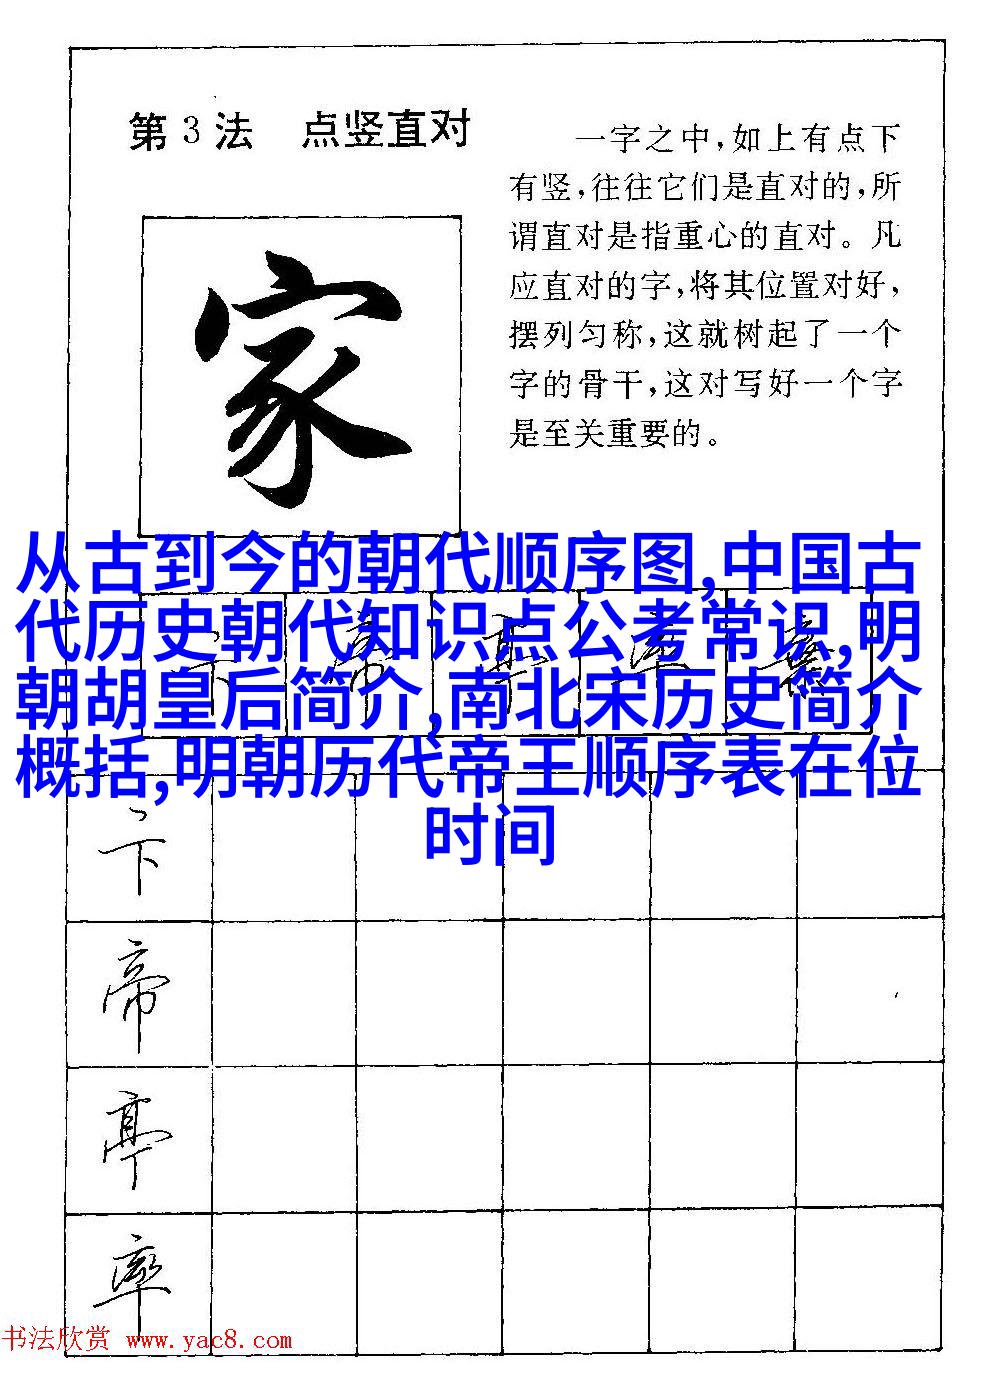 第3法 点竖直对
一字之中,如上有点下
有竖,往往它们是直对的,所
谓直对是指重心的直对。凡
应直对的字,将其位置对好,
摆列匀称,这就树起了一个
字的骨干,这对写好一个字
是至关重要的。
家
从古到今的朝代顺序图,中国古
代历史朝代知识点公考常识,明
朝胡皇后简介,南北宋历史简介
概括,明朝历代帝王顺序表在位
时间
卞
帝
亭
率
书法欣赏 www.yac8.com